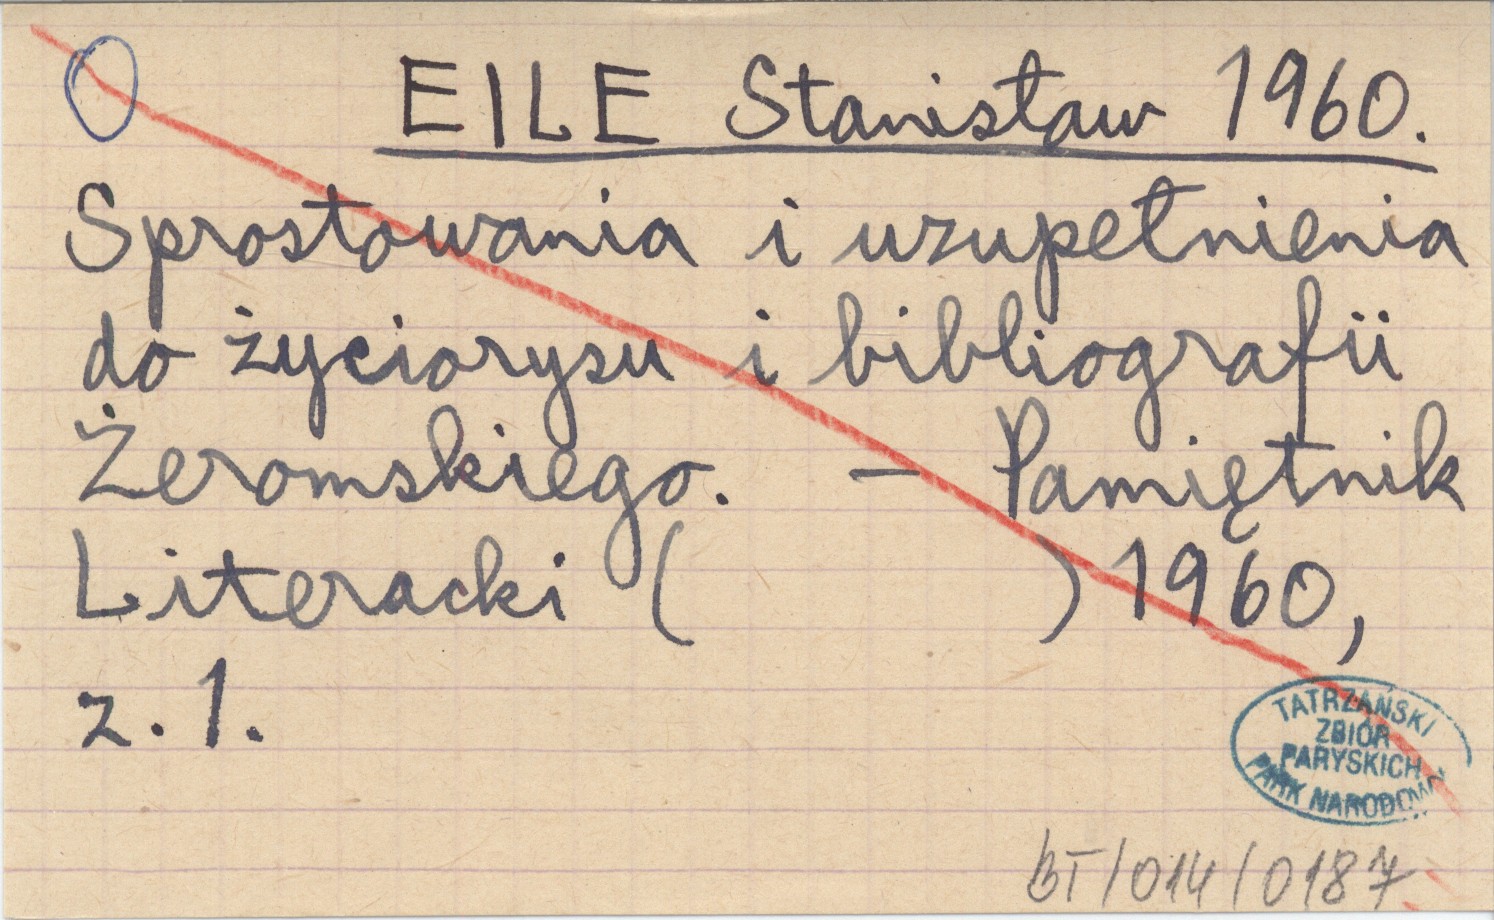 EILE Stanisław 1960.
Sprostowania i uzupełnienia
do życiorysu i bibliografii
Żeromskiego. — Pamiętnik
Literacki ( ) 1960,
z. 1.
TATRZAŃSKI
ZBIÓR
PARYSKICH
PARK NARODOWY
BT/014/0187